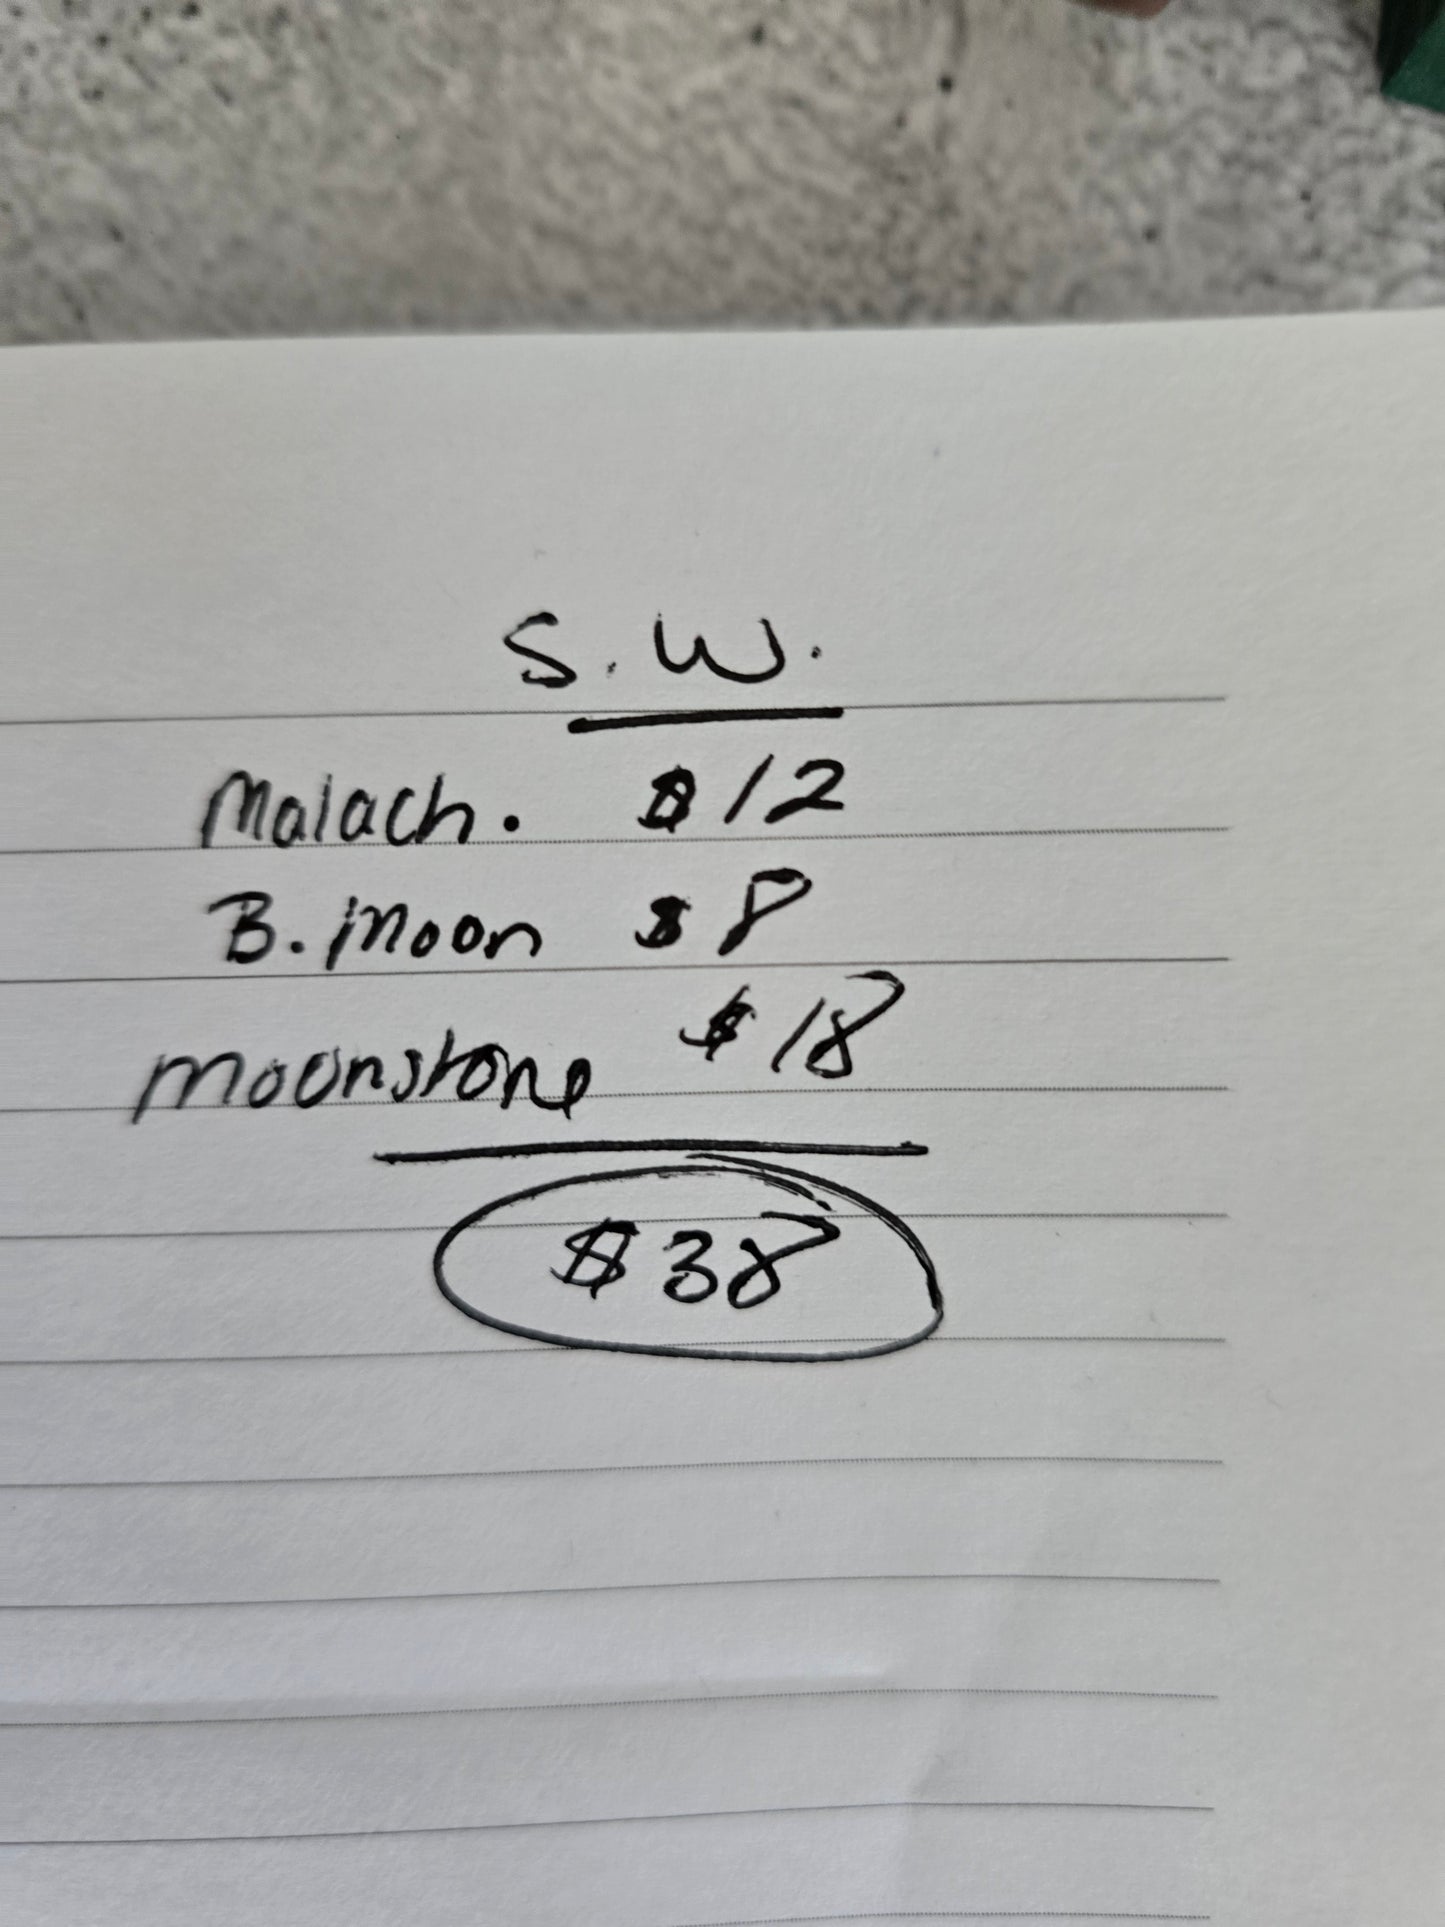 S. W.
Malach. $12
B. Moon $8
Moonstone $18
$38